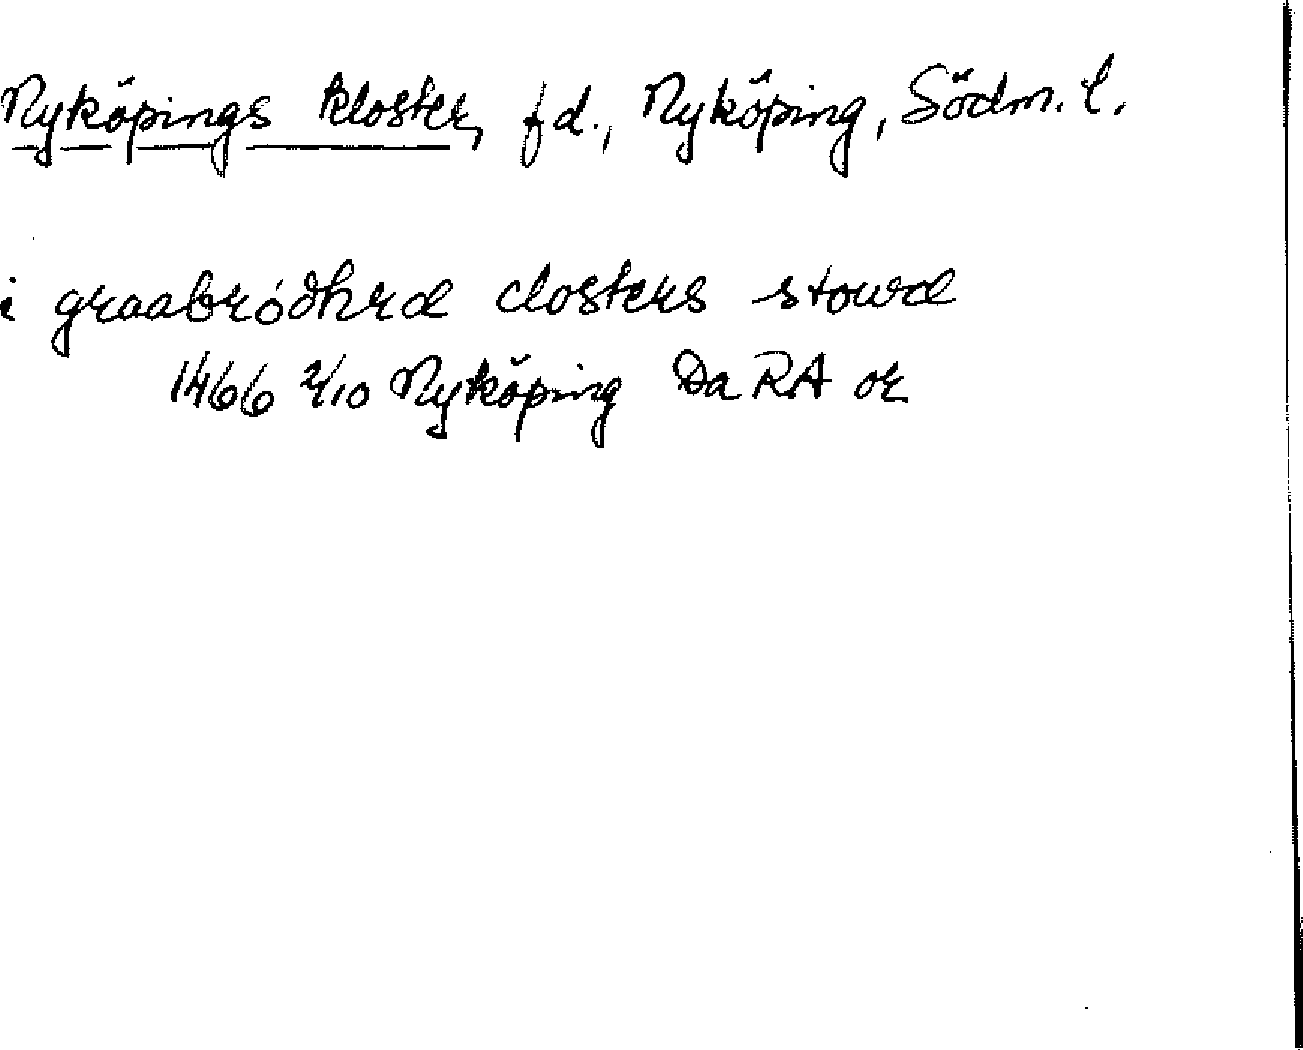 Nyköpings kloster, fd., Nyköping, Södm. l.
i graabródhræ closters stowæ
1466 2/10 Nyköping Da RA or